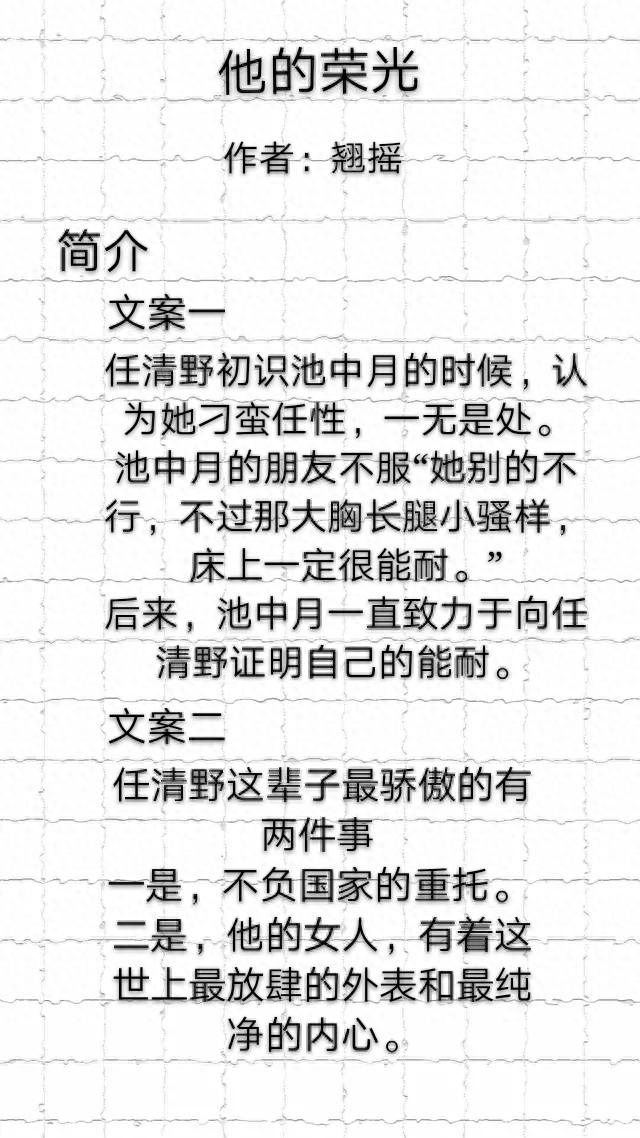 他的荣光
作者：翘摇
简介
文案一
任清野初识池中月的时候，认
为她刁蛮任性，一无是处。
池中月的朋友不服“她别的不
行，不过那大胸长腿小骚样，
床上一定很能耐。”
后来，池中月一直致力于向任
清野证明自己的能耐。
文案二
任清野这辈子最骄傲的有
两件事
一是，不负国家的重托。
二是，他的女人，有着这
世上最放肆的外表和最纯
净的内心。